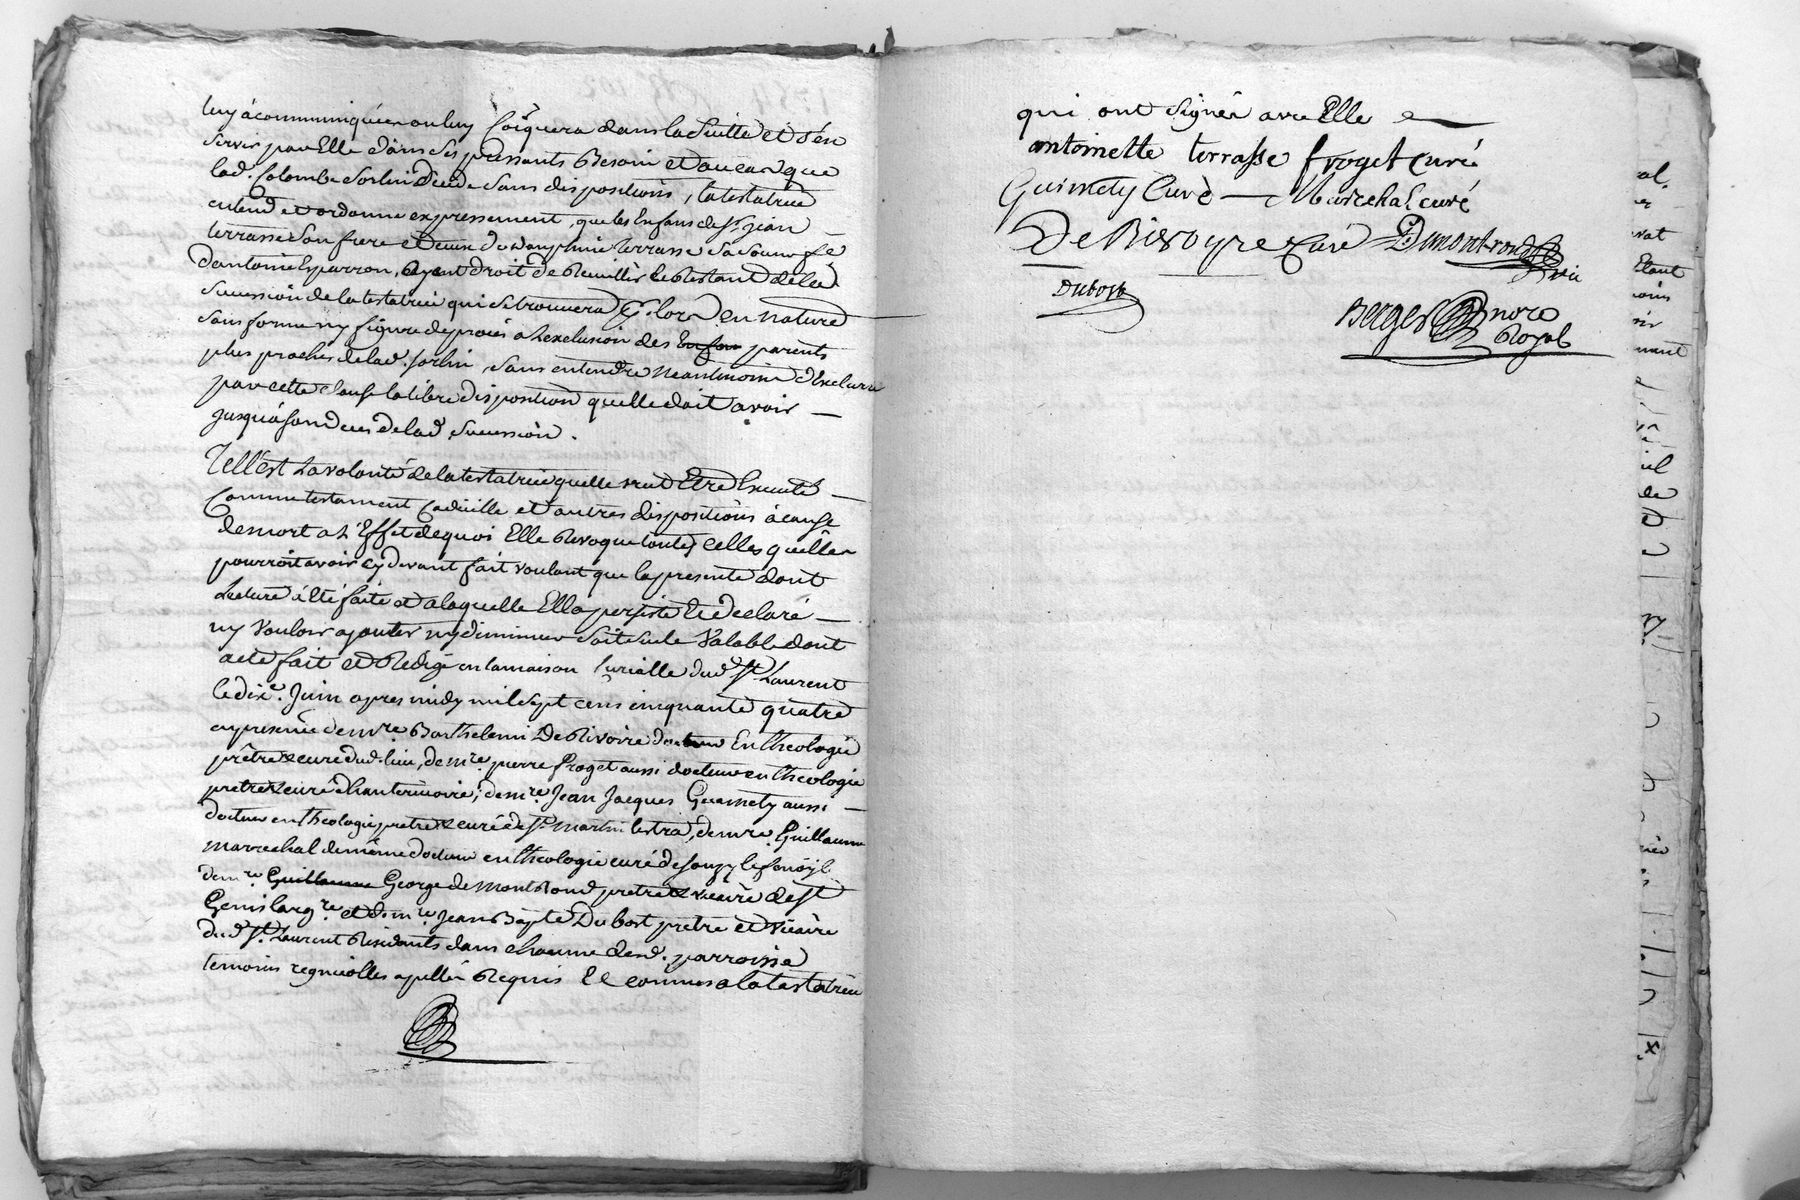 luy à communiquéer ou luy Coiquera dans la Suitte et s'en
servir par Elle dans ses pressants Besoin et au cas que
lad. Colombe Sorlin decede Sans dispositions, la testatrice
entend et ordonne expressement, que les Enfans de Sr. jean —
terrasse Son frere et Ceux de dauphine terrasse Sa Soeur fe
dantoine Esparron, ayent droit de Reuillir le Restant de la
Sucession de la testatrice qui Se trouvera pr. lors en nature
Sans forme ny figure de procés a Lexclusion des parents
plus proches de lad. Sorlin, Sans entendre Neantmoins d'Exclurre
par cette Clause la libre disposition quelle doit avoir —
jusqua son deces de lad. Sucession.
Tell'est La volonté de la testatrice quelle veut Etre Exeuté —
Comme testament Codicille et autres dispositions à cause
de mort a L'Effet de quoi Elle Revoque toutes Celles quelle
pourroit avoir Cy devant fait voulant que la presente dont
Lecture à Eté faite et a laquelle Ella persisté Et declaré —
ny Vouloir ajouter ny diminuer Soit Seule Valable dont
acte fait et Redigé en la maison Curialle dud. St. Laurent
le dixe. Juin apres midy mil Sept cens cinquante quatre
en presence de mre Barthelemi De Rivoire docteur En theologie
prêtre & curé dud. lieu, de mre. pierre froget aussi docteur en theologie
pretre & curé d'hauterivoire, de mre. Jean Jacques Guimety aussi —
docteur en theologie, pretre & curé de St. martin lestra, de mre. Guillaume
mareechal de même docteur en theologie curé de Souzy
de mre. Guillaume George de Montrond pretre & vicaire de St
Genis largre. et de mre Jean Bapte Dubost prêtre et Vicaire
dud. St. Laurent Residants dans chacune desd. parroisse
temoins regnicolles apellés Requis Et connus a la testatrice
qui ont Signés avec Elle
antoinette terrasse froget curé
Guimety Curé — Marechal curé
De Rivoyre Curé Dmontrond
vic
Dubost
Berger nore
Royal